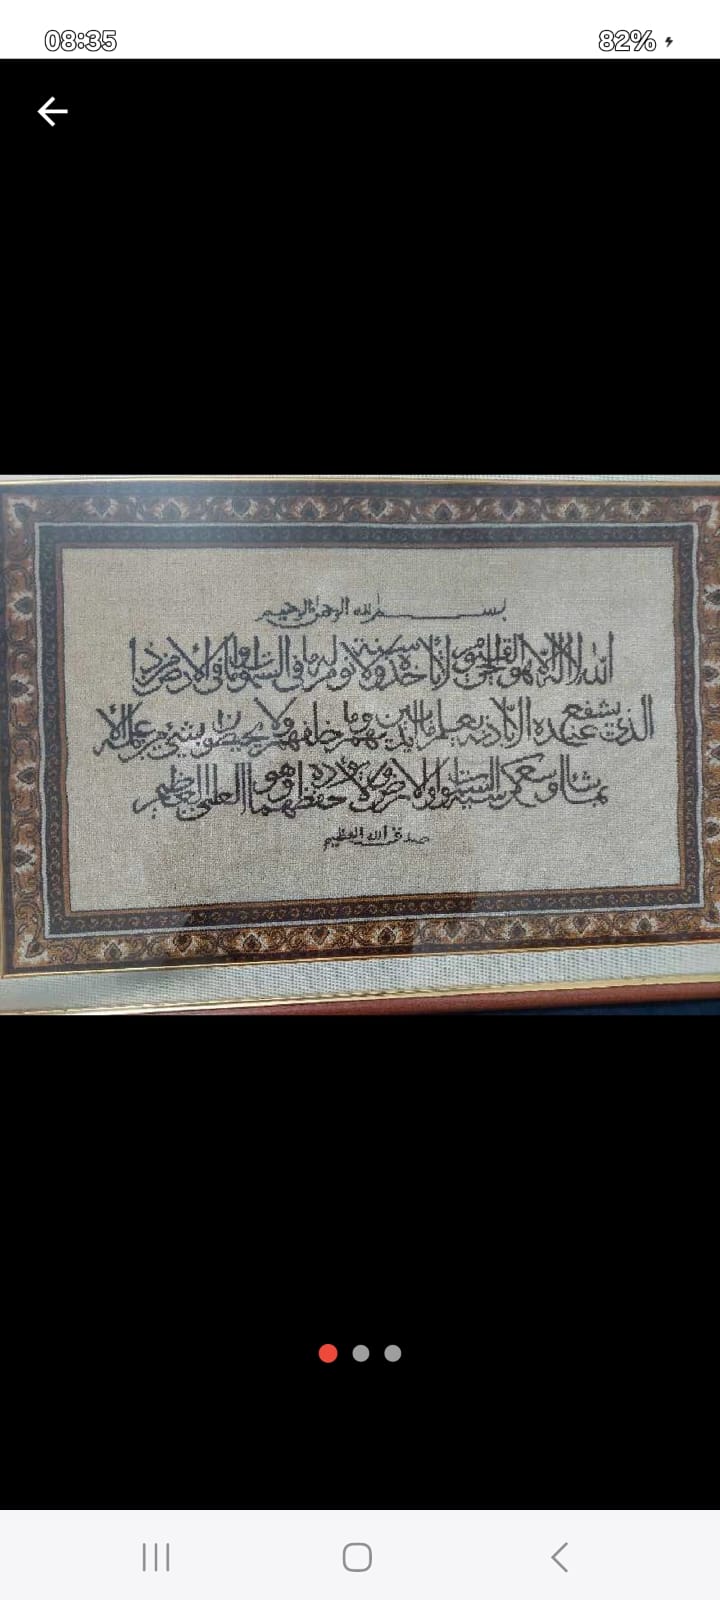 08:35
82%
بسم الله الرحمن الرحيم
الله لا اله الا هو الحي القيوم لا تأخذه سنة ولا نوم له ما في السموات وما في الأرض من ذا
الذي يشفع عنده الا باذنه يعلم ما بين ايديهم وما خلفهم ولا يحيطون بشيء من علمه الا
بما شاء وسع كرسيه السموات والارض ولا يؤده حفظهما وهو العلي العظيم
صدق الله العظيم